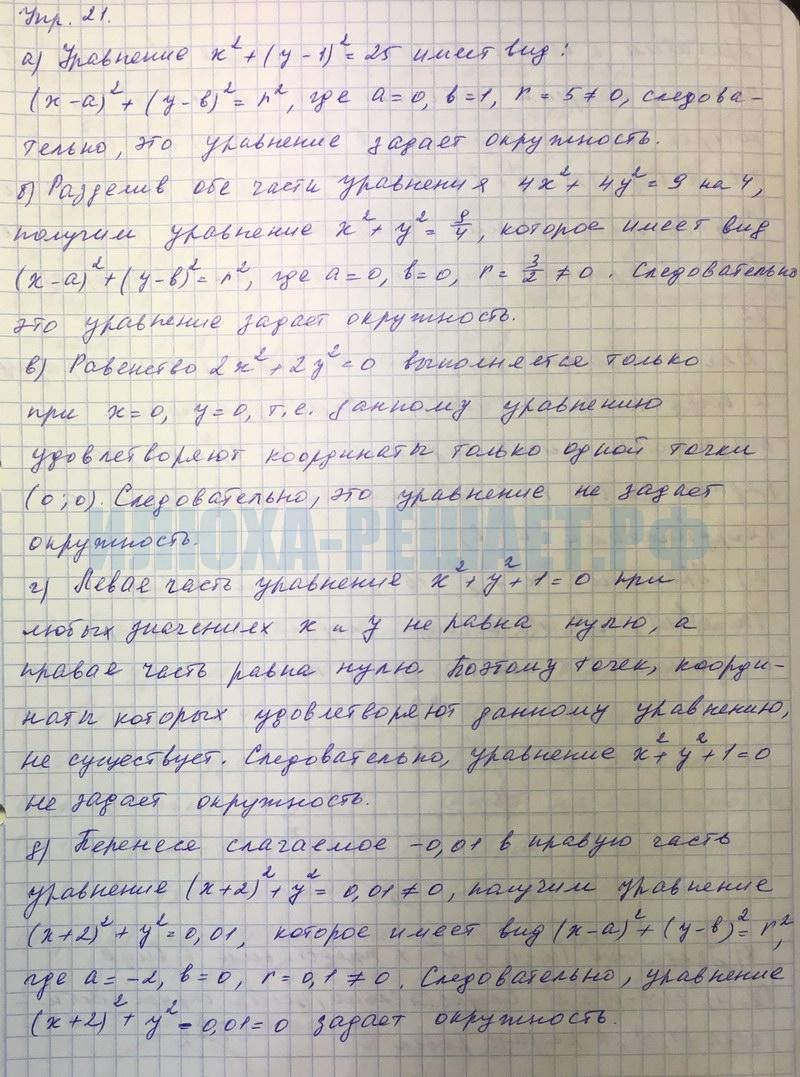 Упр. 21.
а) Уравнение x² + (y - 1)² = 25 имеет вид:
(x - a)² + (y - в)² = r², где a = 0, в = 1, r = 5 ≠ 0, следова-
тельно, это уравнение задает окружность.
б) Разделив обе части уравнения 4x² + 4y² = 9 на 4,
получим уравнение x² + y² = 9/4, которое имеет вид
(x - a)² + (y - в)² = r², где a = 0, в = 0, r = 3/2 ≠ 0. Следовательно
это уравнение задает окружность.
в) Равенство 2x² + 2y² = 0 выполняется только
при x = 0, y = 0, т.е. данному уравнению
удовлетворяют координаты только одной точки
(0; 0). Следовательно, это уравнение не задает
ИЛЮХА-РЕШАЕТ.РФ
окружность.
г) Левая часть уравнение x² + y² + 1 = 0 при
любых значениях x и y не равна нулю, а
правая часть равна нулю. Поэтому точек, коорди-
наты которых удовлетворяют данному уравнению,
не существует. Следовательно, уравнение x² + y² + 1 = 0
не задает окружность.
д) Перенесе слагаемое -0,01 в правую часть
уравнение (x + 2)² + y² = 0,01 ≠ 0, получим уравнение
(x + 2)² + y² = 0,01, которое имеет вид (x - a)² + (y - в)² = r²,
где a = -2, в = 0, r = 0,1 ≠ 0. Следовательно, уравнение
(x + 2)² + y² - 0,01 = 0 задает окружность.